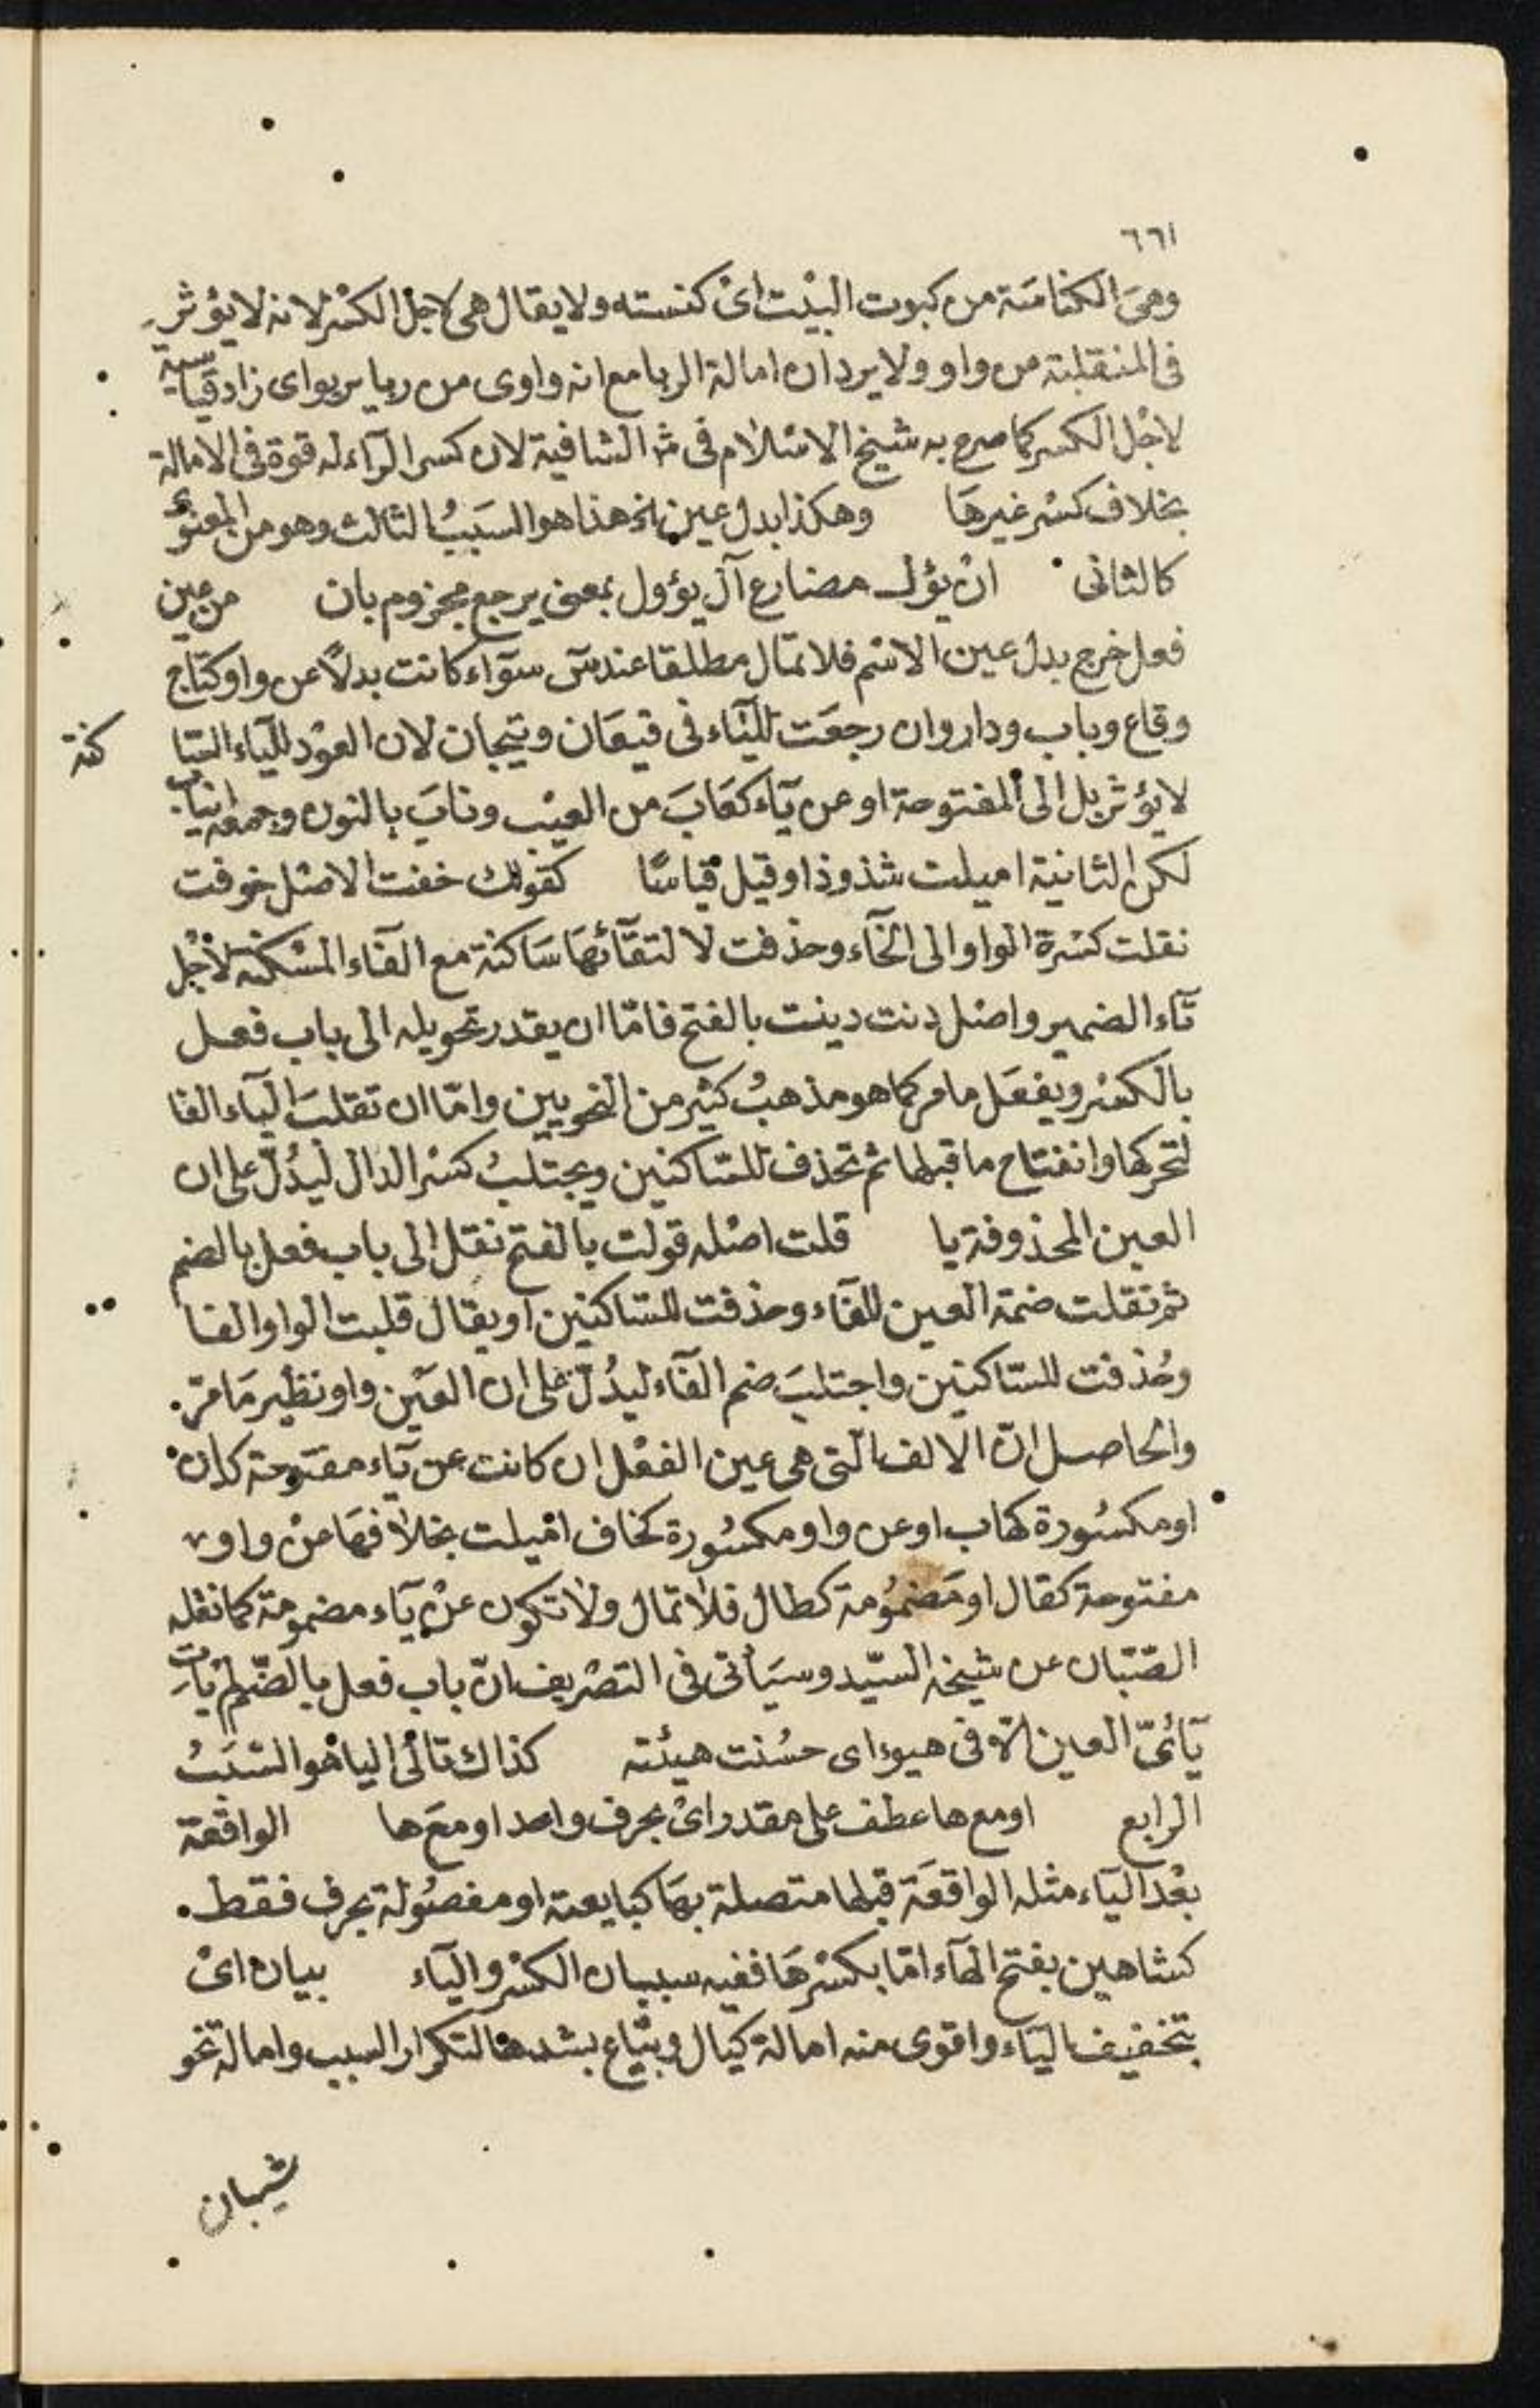 ٦٦١
وهى الكناسة من كبوت البيت اى كنسته ولا يقال هى لاجل الكسر لانه لا يؤثر
فى المنقلبة من واو ولا يرد ان امالة الربا مع انه واوى من ربا يربو اى زاد قياسية
لاجل الكسر كما صرح به شيخ الاسلام فى ش الشافية لان كسر الرآء له قوة فى الامالة
بخلاف كسر غيرها وهكذا بدل عين الخ هذا هو السبب الثالث وهو من المعنوى
كالثانى ان يؤل مضارع آل يؤول بمعنى يرجع مجزوم بان من عين
فعل خرج بدل عين الاسم فلا تمال مطلقا عند س سوآء كانت بدلاً عن واو كتاج
وقاع وباب ودار وان رجعت للياء فى قيعان وتيجان لان العود للياء الساكنة
لا يؤثر بل الى المفتوحة او عن يآء كعاب من العيب وناب بالنون وجمعه انياب
لكن الثانية اميلت شذوذا وقيل قياسًا كقولك خفت الاصل خوفت
نقلت كسرة الواو الى الخآء وحذفت لالتقآئها ساكنة مع الفآء المسكنة لاجل
تآء الضمير واصل دنت دينت بالفتح فامّا ان يقدر تحويله الى باب فعل
بالكسر ويفعل ما مر كما هو مذهب كثير من النحويين وامّا ان تقلب اليآء الفا
لتحركها وانفتاح ما قبلها ثم تحذف للساكنين ويجتلب كسر الدال ليدُلّ على ان
العين المحذوفة يا قلت اصله قولت بالفتح نقل الى باب فعل بالضم
ثم نقلت ضمة العين للفآء وحذفت للساكنين او يقال قلبت الواو الفا
وحُذفت للسّاكنين واجتلبَ ضم الفآء ليدُلّ على ان العين واو نظير مَا مرّ.
والحاصل انّ الالف التى هى عين الفعل ان كانت عن يآء مفتوحة كدان
او مكسُورة كهاب او عن واو مكسُورة كخاف اميلت بخلافها عن واو
مفتوحة كقال او مَضمُومة كطال فلا تمال ولا تكون عن يآء مضمومة كما نقله
الصّبان عن شيخه السّيد وسيَأتى فى التصريف انّ باب فعل بالضّم لم يأت
يآئىّ العين الّا فى هيوء اى حسُنت هيئته كذاك تالى اليا هو السّبَبُ
الرابع او مع ها عطف على مقدر اىْ بحرف واحد او معَ ها الواقعة
بعْد اليآء مثله الواقعَة قبلها متصلة بهَا كبايعته او مفصُولة بحرف فقط.
كشاهين بفتح الهآء امّا بكسْرهَا ففيه سببان الكسْر واليآء بيان اىْ
بتخفيف اليآء واقوى منه امالة كيال وبيّاع بشدها لتكرار السبب وامالة نحو
شيبان